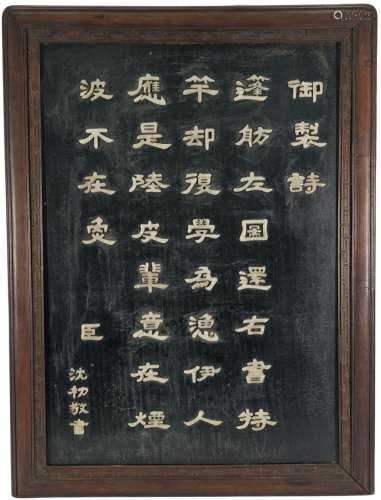 御製詩
篷舫左圖還右書持
竿却復學為漁伊人
應是陸皮輩意在煙
波不在魚 臣
沈初敬書